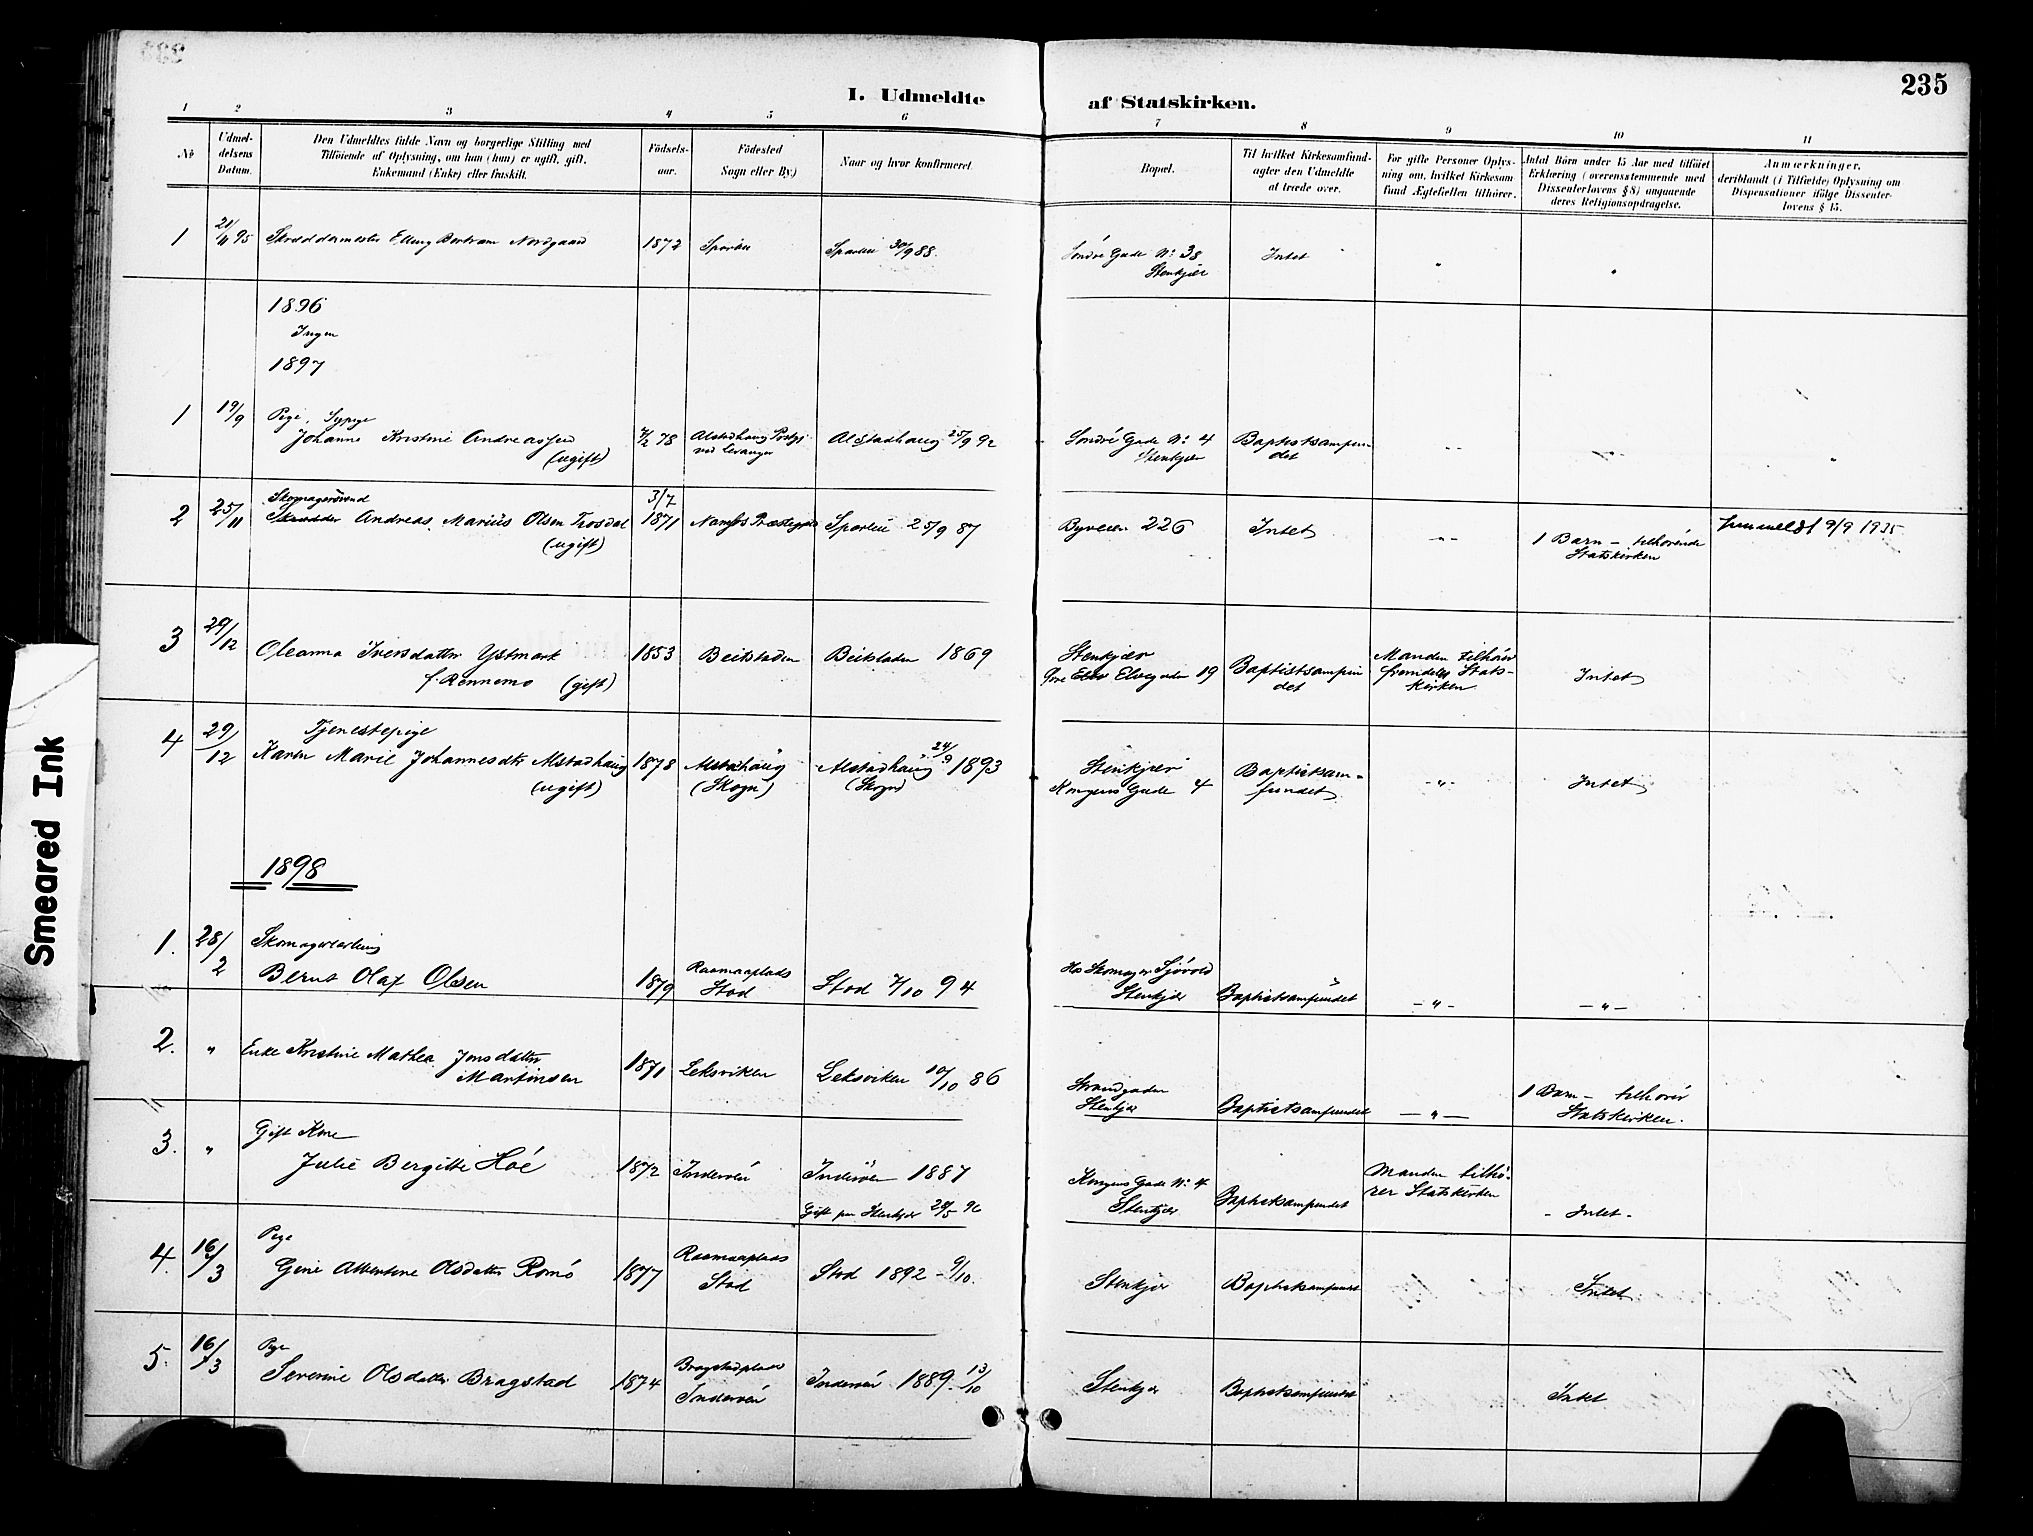 235
I. Udmeldte af Statskirken.
1 2 3 4 5 6 7 8 9 10 11
No
Udmel-
delsens
Datum.
Den Udmeldtes fulde Navn og borgerlige Stilling med
Tilföiende af Oplysning, om han (hun) er ugift, gift,
Enkemand (Enke) eller fraskilt.
Födsels-
aar.
Födested
Sogn eller By.)
Naar og hvor konfirmeret.
Bopæl.
Til hvilket Kirkesamfund-
agter den Udmeldte
at træde over.
For gifte Personer Oplys-
ning om, hvilket Kirkesam
fund Ægtefællen tilhörer.
Antal Börn under 15 Aar med tilföiet
Erklæring (overensstemmende med
Dissenterlovens § 8) angaaende
deres Religionsopdragelse.
Anmærkninger,
deriblandt (i Tilfælde) Oplysning om
Dispensationer ifölge Dissenter-
lovens § 15.
1 21/11 95 Skræddermester Elling Bertram Nordgaard 1872 Sparbu Sparbu 30/9 88. Söndre Gade No 38 Intet " "
Stenkjær
1896
Ingen
1897
1 19/9 Pige, Sypige
Johanne Kristine Andreassen 4/2 78 Alstadhaug Prstgj. Alstadhaug 25/9 92 Söndre Gade No 4 Baptistsamfun
(ugift) ved Levanger Stenkjær det
Skomagersvend 3/7
2 25/11 Skrædder Andreas Marius Olsen Trosdal 1871 Namsos Præstegjeld Sparbu 25/9 87 Byveien 226 Intet - " - 1 Barn - tilhörende Innmeldt 9/9 1935
(ugift) Statskirken
3 29/12 Oleanna Iversdatter Ystmark 1853 Beitstaden Beitstaden 1869 Stenkjær Baptistsamfun Manden tilhörer Intet
f. Rennemo (gift) Elvegaden 19 det fremdeles Stats-
kirken
4 29/12 Tjenestepige
Karen Marie Johannesdtr Alstadhaug 1878 Alstadhaug Alstadhaug 24/9 1893 Stenkjær Baptistsam- - " - Intet
(ugift) (Skogn) (Skogn) Kongens Gade 4 fundet
1898
1. 28/2 Skomagerlærling
Bernt Olaf Olsen 1879 Raamaaplads Stod 7/10 94 Hos Skomager Sjövold Baptistsamfundet - " - - " -
Stod Stenkjær
2. " Enke Kristine Mathea Jonsdatter 1871 Leksviken Leksviken 10/10 86 Strandgaden Baptistsamfundet - " - 1 Barn - tilhörer
Martinsen Stenkjær Statskirken.
3. " Gift Kone
Julie Bergitte Hoé 1872 Inderöen Inderöen 1887 Kongens Gade No 4 Baptistsamfundet Manden tilhö- - Intet -
Gift paa Stenkjær 20/5 96 Stenkjær rer Statskirken
4. 16/3 Pige
Gine Albertine Olsdatter Romö 1877 Raamaaplads Stod 1892 - 9/10. Stenkjær Baptistsamfundet Intet
Stod
5. 16/3 Pige
Severine Olsdatter Bragstad 1874 Bragstadplads Inderöen 1889. 13/10 Stenkjær Baptistsamfundet Intet
Inderöen
Smeared Ink